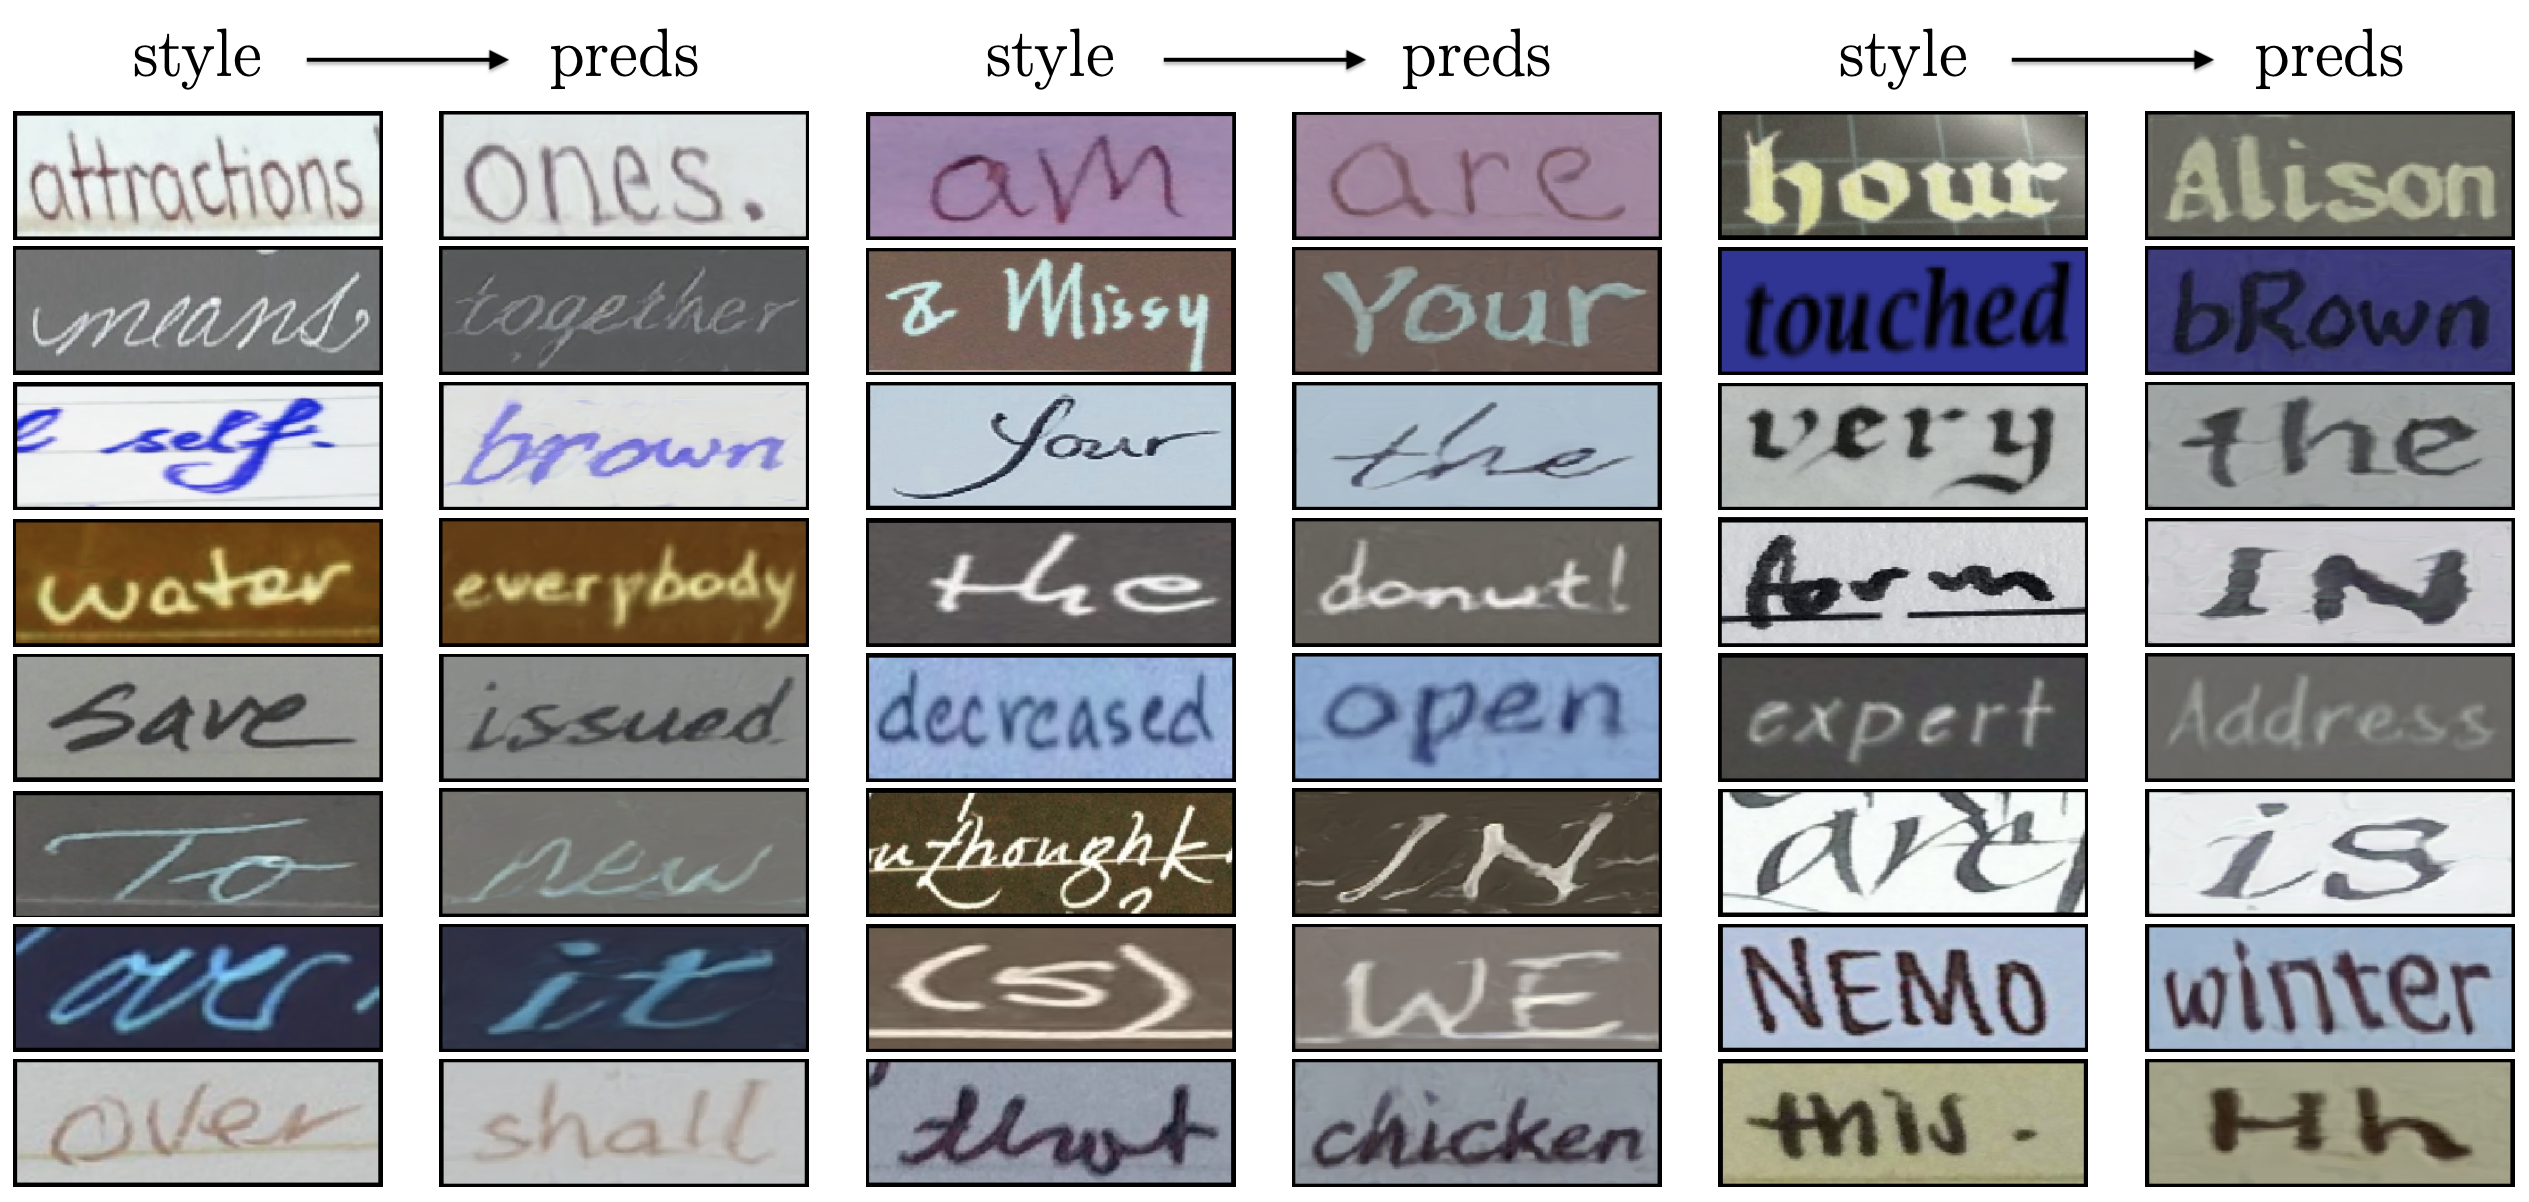 style preds style preds style preds
attractions ones. am are hour Alison
means together & Missy Your touched bRown
e self. brown Your the very the
water everybody the donut! form IN
save issued decreased open expert Address
To new u thought IN are is
over it (s) WE NEMO winter
over shall that chicken this. Hh